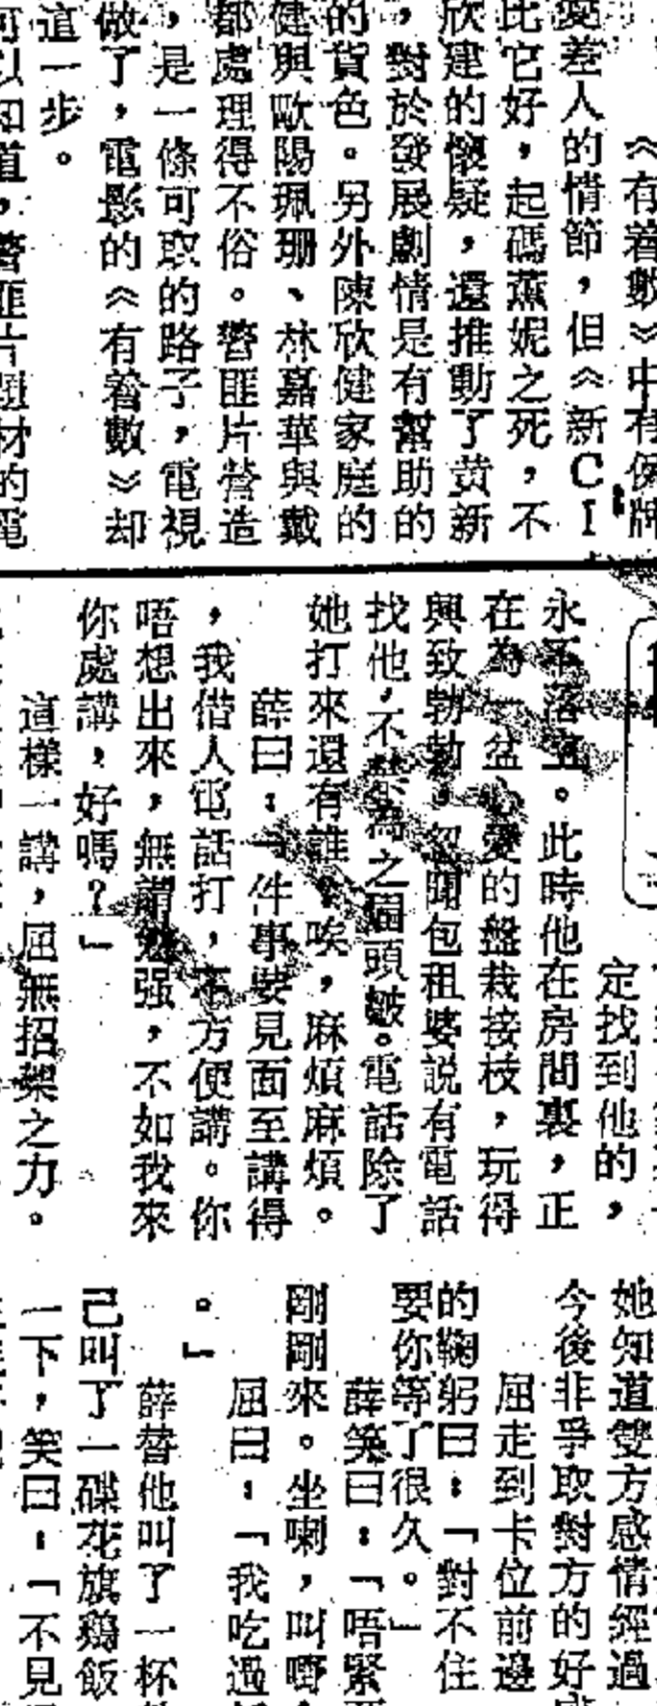 《有着數》中有俾牌
變差人的情節，但《新CI
比它好，起碼蕉妮之死，不
欣建的懷疑，還推動了黄新
，對於發展劇情是有幫助的
的貨色。另外陳欣健家庭的
健與歐陽珮珊、林嘉華與戴
都處理得不俗。警匪片營造
，是一條可取的路子，電視
做了，電影的《有着數》却
這一步。
可以知道，警匪片題材的電
定找到他的，
永不落空。此時他在房間裏，正
在為一盆心愛的盤栽接枝，玩得
興致勃勃，忽聞包租婆説有電話
找他，不禁為之眉頭皺。電話除了
她打來還有誰？唉，麻煩麻煩。
薛曰：「件事要見面至講得
，我借人電話打，不方便講。你
唔想出來，無謂勉强，不如我來
你處講，好嗎？」
這樣一講，屈無招架之力。
她知道雙方感情經過
今後非爭取對方的好
屈走到卡位前邊
的鞠躬曰：「對不住
要你等了很久。」
薛笑曰：「唔緊要
剛剛來。坐喇，叫嘢
屈曰：「我吃過
。」
薛替他叫了一杯
己叫了一碟花旗鷄飯
一下，笑曰：「不見